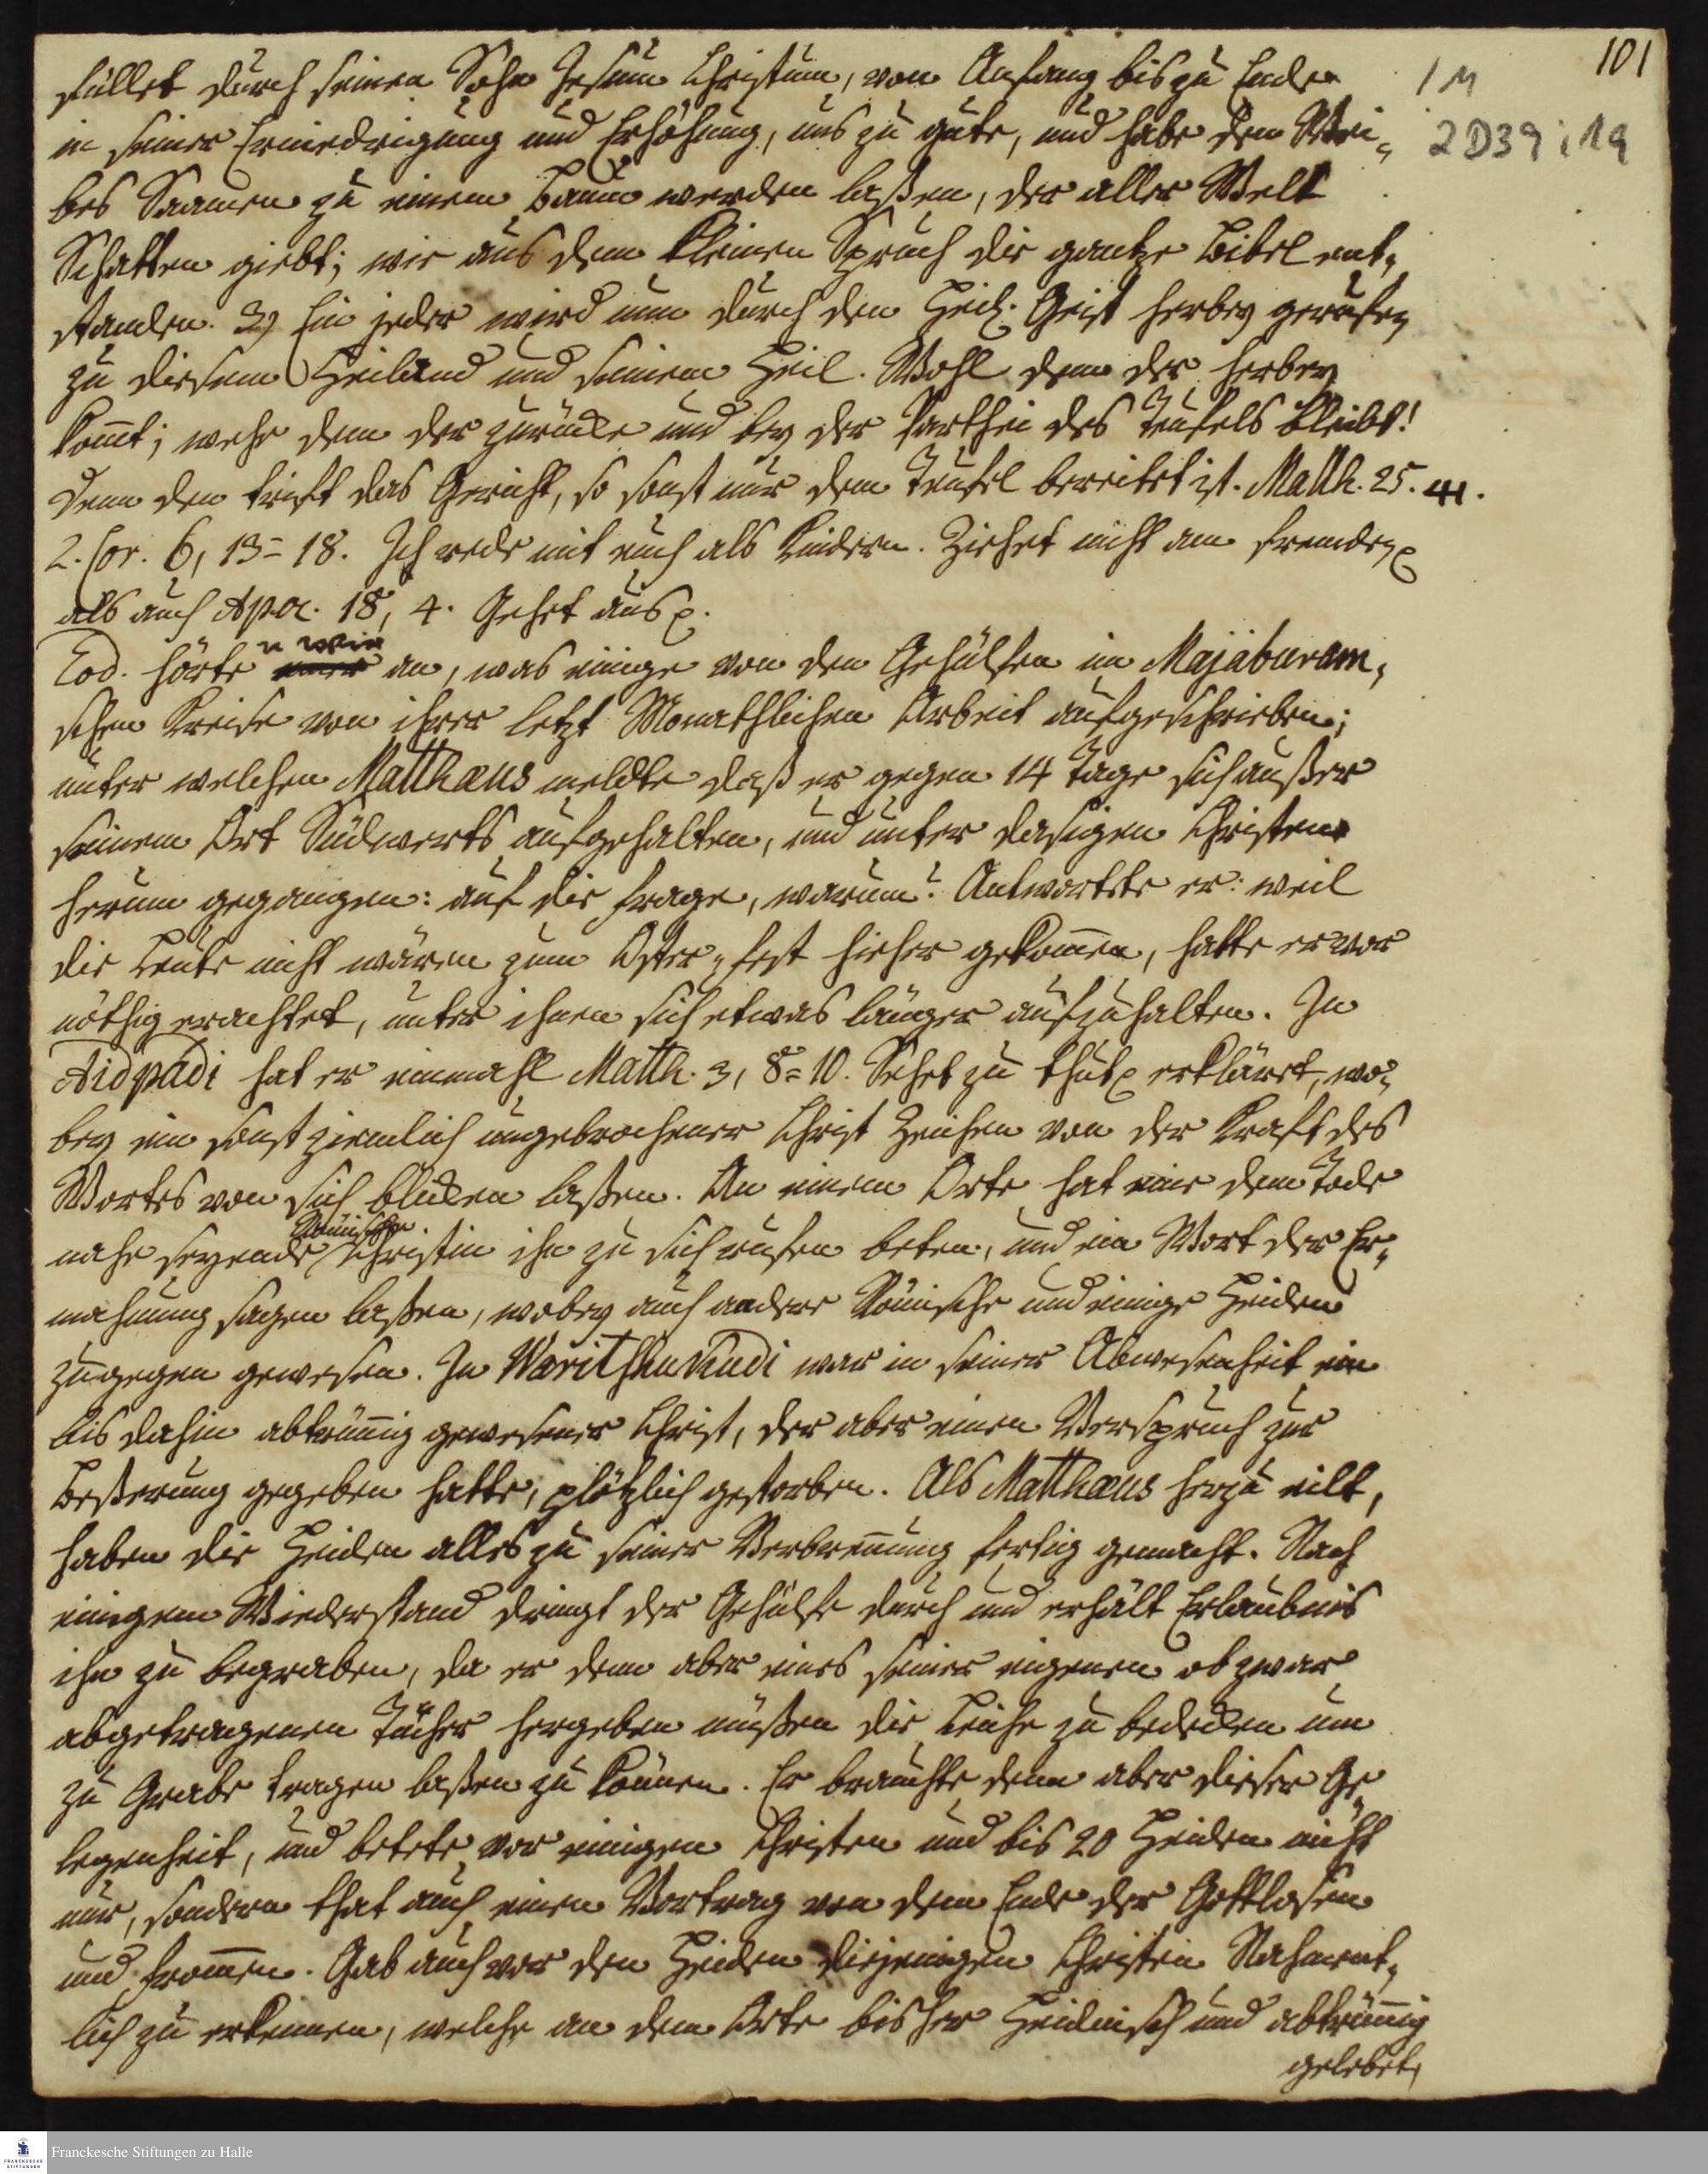 101
1 M
2 D39 : 19
füllet durch seinen Sohn Jesum Christum, von Anfang bis zu Ende
in seiner Erniedrigung und Erhöhung, uns zu gute, und habe den Wei-
bes Saamen zu einem Baum werden laßen, der aller Welt
Schatten giebt; wie aus dem kleinen Spruch die gantze Bibel ent-
standen. 3) Ein jeder wird nun durch den Heil. Geist herbey geruffen
zu diesem Heiland und seinem Heil. Wohl dem der herbey
kom̄t; wehe dem der zurücke und bey der Parthei des Teufels bleibt!
Denn den trift das Gericht, so sonst nur dem Teufel bereitet ist. Matth. 25. 41.
2. Cor. 6, 13-18. Ich rede mit euch als Kindern. Ziehet nicht am fremden p
als auch Apoc. 18, 4. Gehet aus p.
Eod. hörte u wir an, was einige von den Gehülfen im Majaburam-
schen Kreise von ihrer letzt Monathlichen Arbeit aufgeschrieben;
unter welchen Matthæus meldte daß er gegen 14 Tage sich außer
seinem Ort Südwerts aufgehalten, und unter dasigen Christen
herum gegangen: auf die Frage, warum? Antwortete er: weil
die Leute nicht wären zum Oster-fest hieher gekom̄en, hatte er vor
nöthig erachtet, unter ihnen sich etwas länger aufzuhalten. In
Aidpadi hat er einmahl Matth. 3, 8-10. Sehet zu thut p erkläret, wo-
bey ein sonst ziemlich ungebrochener Christ Zeichen von der Kraft des
Wortes von sich blicken laßen. An einem Orte hat eine dem Tode
nahe seyende Römische Christin ihn zu sich rufen beten, und ein Wort der Er-
mahnung sagen laßen, wobey auch andere Römische und einige Heiden
zugegen gewesen. In Waritschukudi war in seiner Abwesenheit ein
bis dahin abtrün̄ig gewesener Christ, der aber einen Verspruch zur
Beßerung gegeben hatte, plötzlich gestorben. Als Matthæus herzu eilt,
haben die Heiden alles zu seiner Verbren̄ung fertig gemacht. Nach
einigem Wiederstand dringt der Gehülfe durch und erhält Erlaubnis
ihn zu begraben, da er denn aber eines seiner eigenen obzwar
abgetragenen Tücher hergeben müßen die Leiche zu bedecken um
zu Grabe tragen laßen zu können. Er brauchte denn aber dieser Ge-
legenheit, und betete vor einigen Christen und bis 20 Heiden nicht
nur, sondern that auch einen Vortrag von dem Ende der Gottlosen
und from̄en. Gab auch vor den Heiden diejenigen Christen Nahment-
lich zu erkennen, welche an dem Orte bisher Heidnisch und abtrün̄ig
gelebet,
Franckesche Stiftungen zu Halle